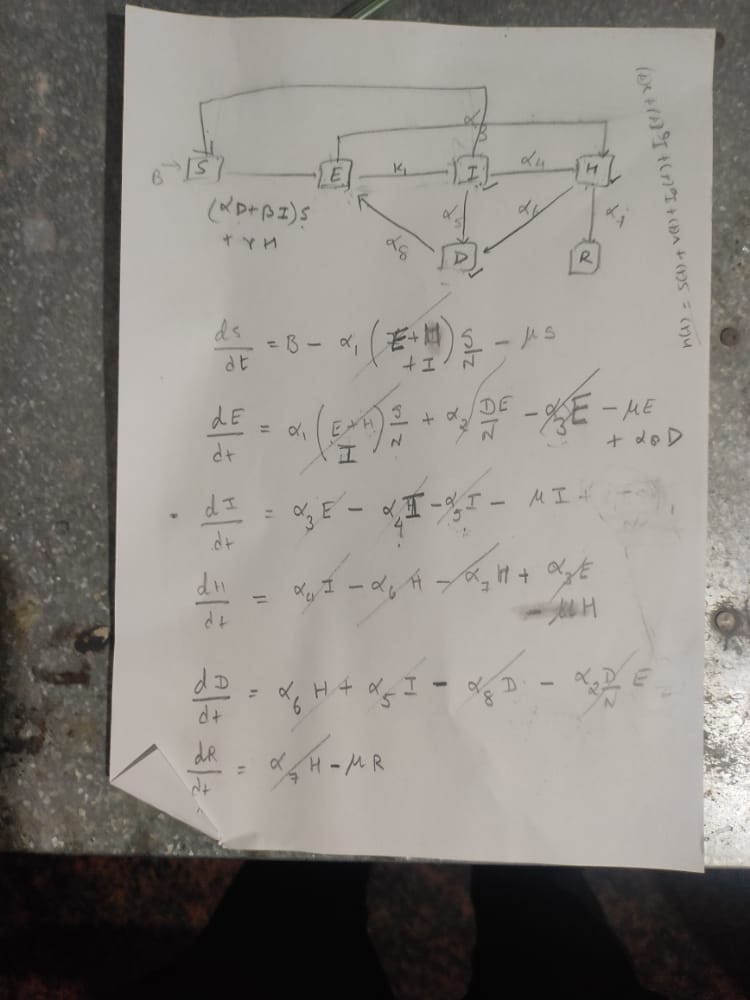 B → S E K₁ I α₄ H
(αD+βI)S
+ γH
α₈ α₅ α₆ α₇
D R
dS/dt = B − α₁ (E+H+I) S/N − μS
dE/dt = α₁ (E+H I) S/N + α₂ DE/N − α₃E − μE
+ α₈D
dI/dt = α₃E − α₄I − α₅I − μI +
dH/dt = α₄I − α₆H − α₇H + α₃E
− μH
dD/dt = α₆H + α₅I − α₈D − α₂ D/N E
dR/dt = α₇H − μR